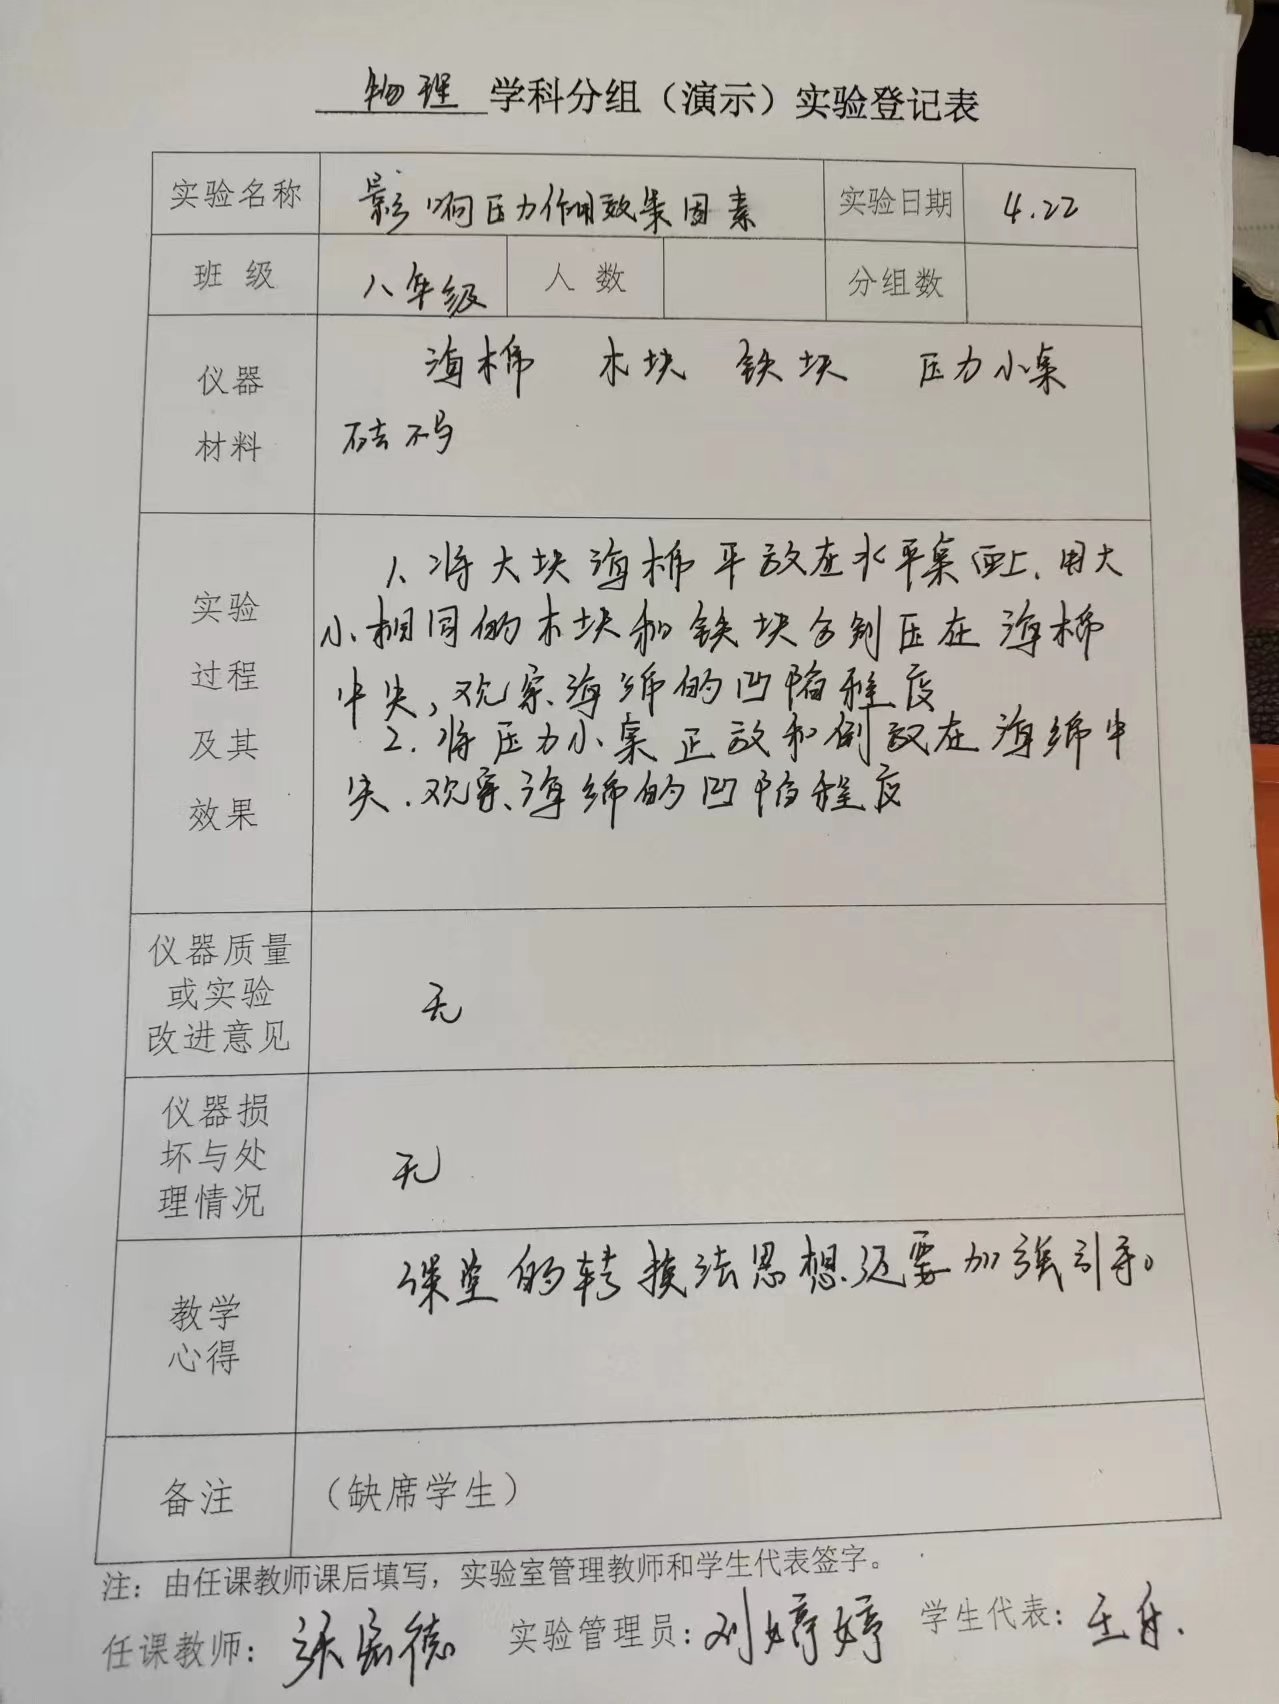 物理 学科分组（演示）实验登记表
实验名称 影响压力作用效果因素 实验日期 4.22
班 级 八年级 人 数 分组数
仪器
材料
海棉 木块 铁块 压力小桌
砝码
实验
过程
及其
效果
1、将大块海棉平放在水平桌面上.用大
小相同的木块和铁块分别压在海棉
中央,观察海绵的凹陷程度
2.将压力小桌正放和倒放在海绵中
央.观察海绵的凹陷程度
仪器质量
或实验
改进意见
无
仪器损
坏与处
理情况
无
教学
心得
课堂的转换法思想还要加强引导。
备注 （缺席学生）
注：由任课教师课后填写，实验室管理教师和学生代表签字。
任课教师： 实验管理员：刘婷婷 学生代表：